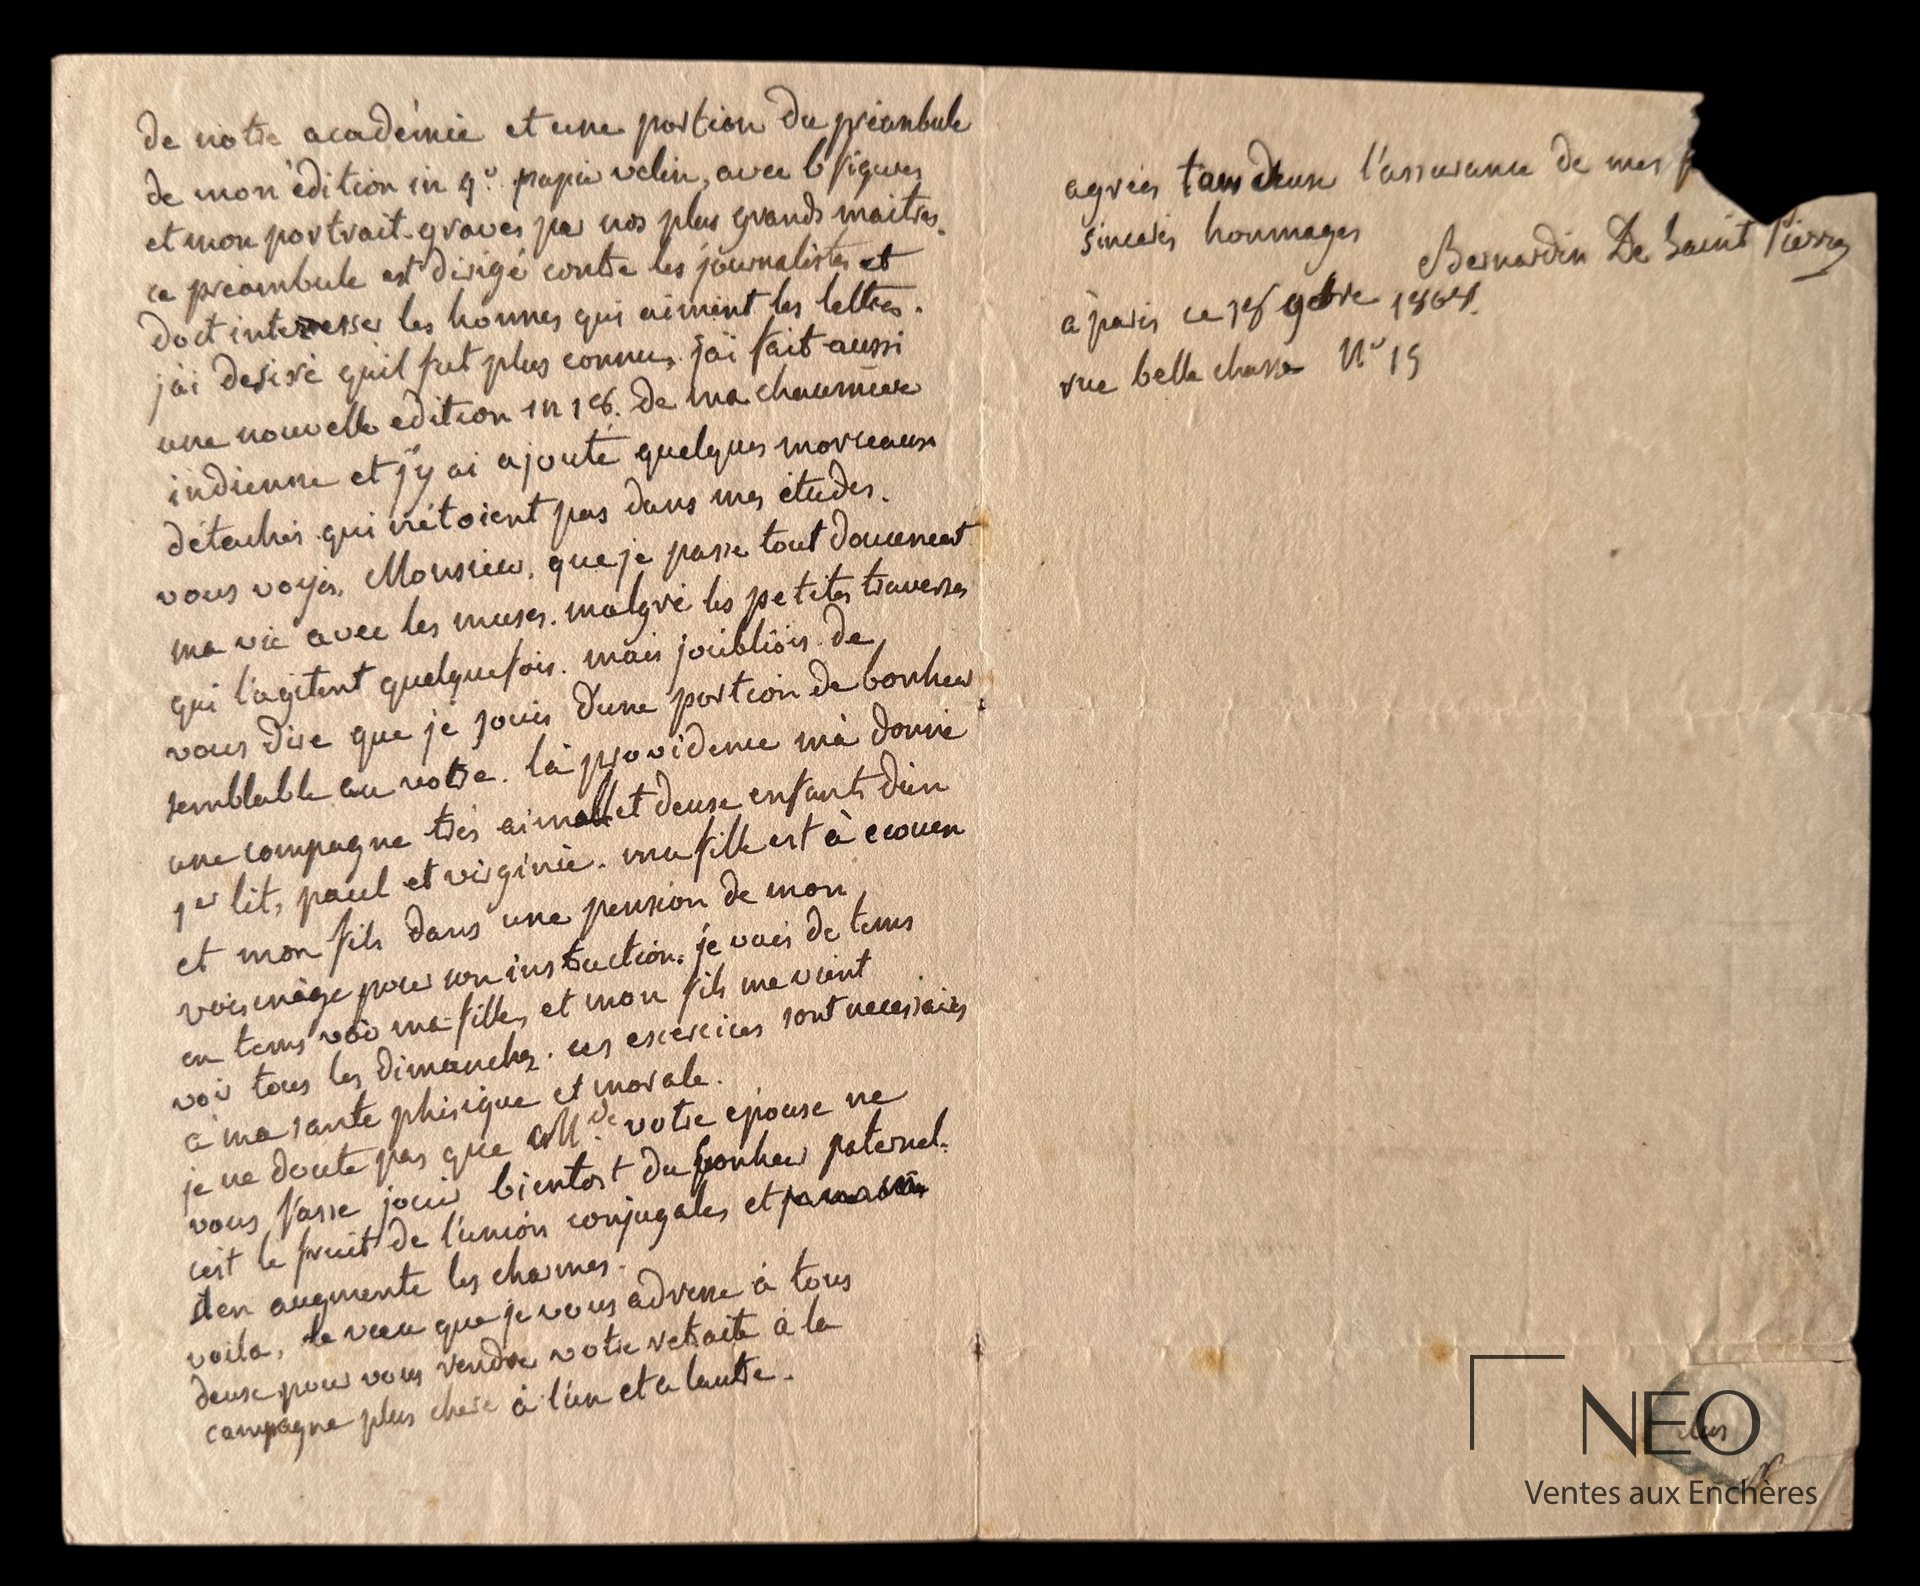 de notre académie et une portion du préambule
de mon édition in 4º. papier velin, avec 6 figures
et mon portrait gravés par nos plus grands maitres.
ce préambule est dirigé contre les journalistes et
doit interesser les hommes qui aiment les lettres.
j'ai desiré qu'il fut plus connu, j'ai fait aussi
une nouvelle edition in 18. de ma chaumière
indienne et j'y ai ajouté quelques morceaux
détachés qui n'étoient pas dans mes études.
vous voyés, Monsieur, que je passe tout doucement
ma vie avec les muses. malgré les petites traverses
qui l'agitent quelquefois. mais j'oubliois de
vous dire que je jouis d'une portion de bonheur
semblable au votre. la providence m'a donné
une compagne très aimable et deux enfants d'un
1er lit, paul et virginie. ma fille est à ecouen
et mon fils dans une pension de mon
voisinage pour son instruction. je vais de tems
en tems voir ma fille, et mon fils me vient
voir tous les dimanches. ces exercices sont necessaires
a ma santé phisique et morale.
je ne doute pas que Mde votre epouse ne
vous fasse jouir bientost du bonheur paternel.
c'est le fruit de l'union conjugales et
il en augmente les charmes.
voila, le vœu que je vous adresse à tous
deux pour vous rendre votre retraite à la
campagne plus chere à l'un et a lautre.
agréés tous deux l'assurance de mes
sinceres hommages
Bernardin De Saint Pierre
à paris ce 18 9bre
rue belle chasse Nº 15
NEO
Ventes aux Enchères